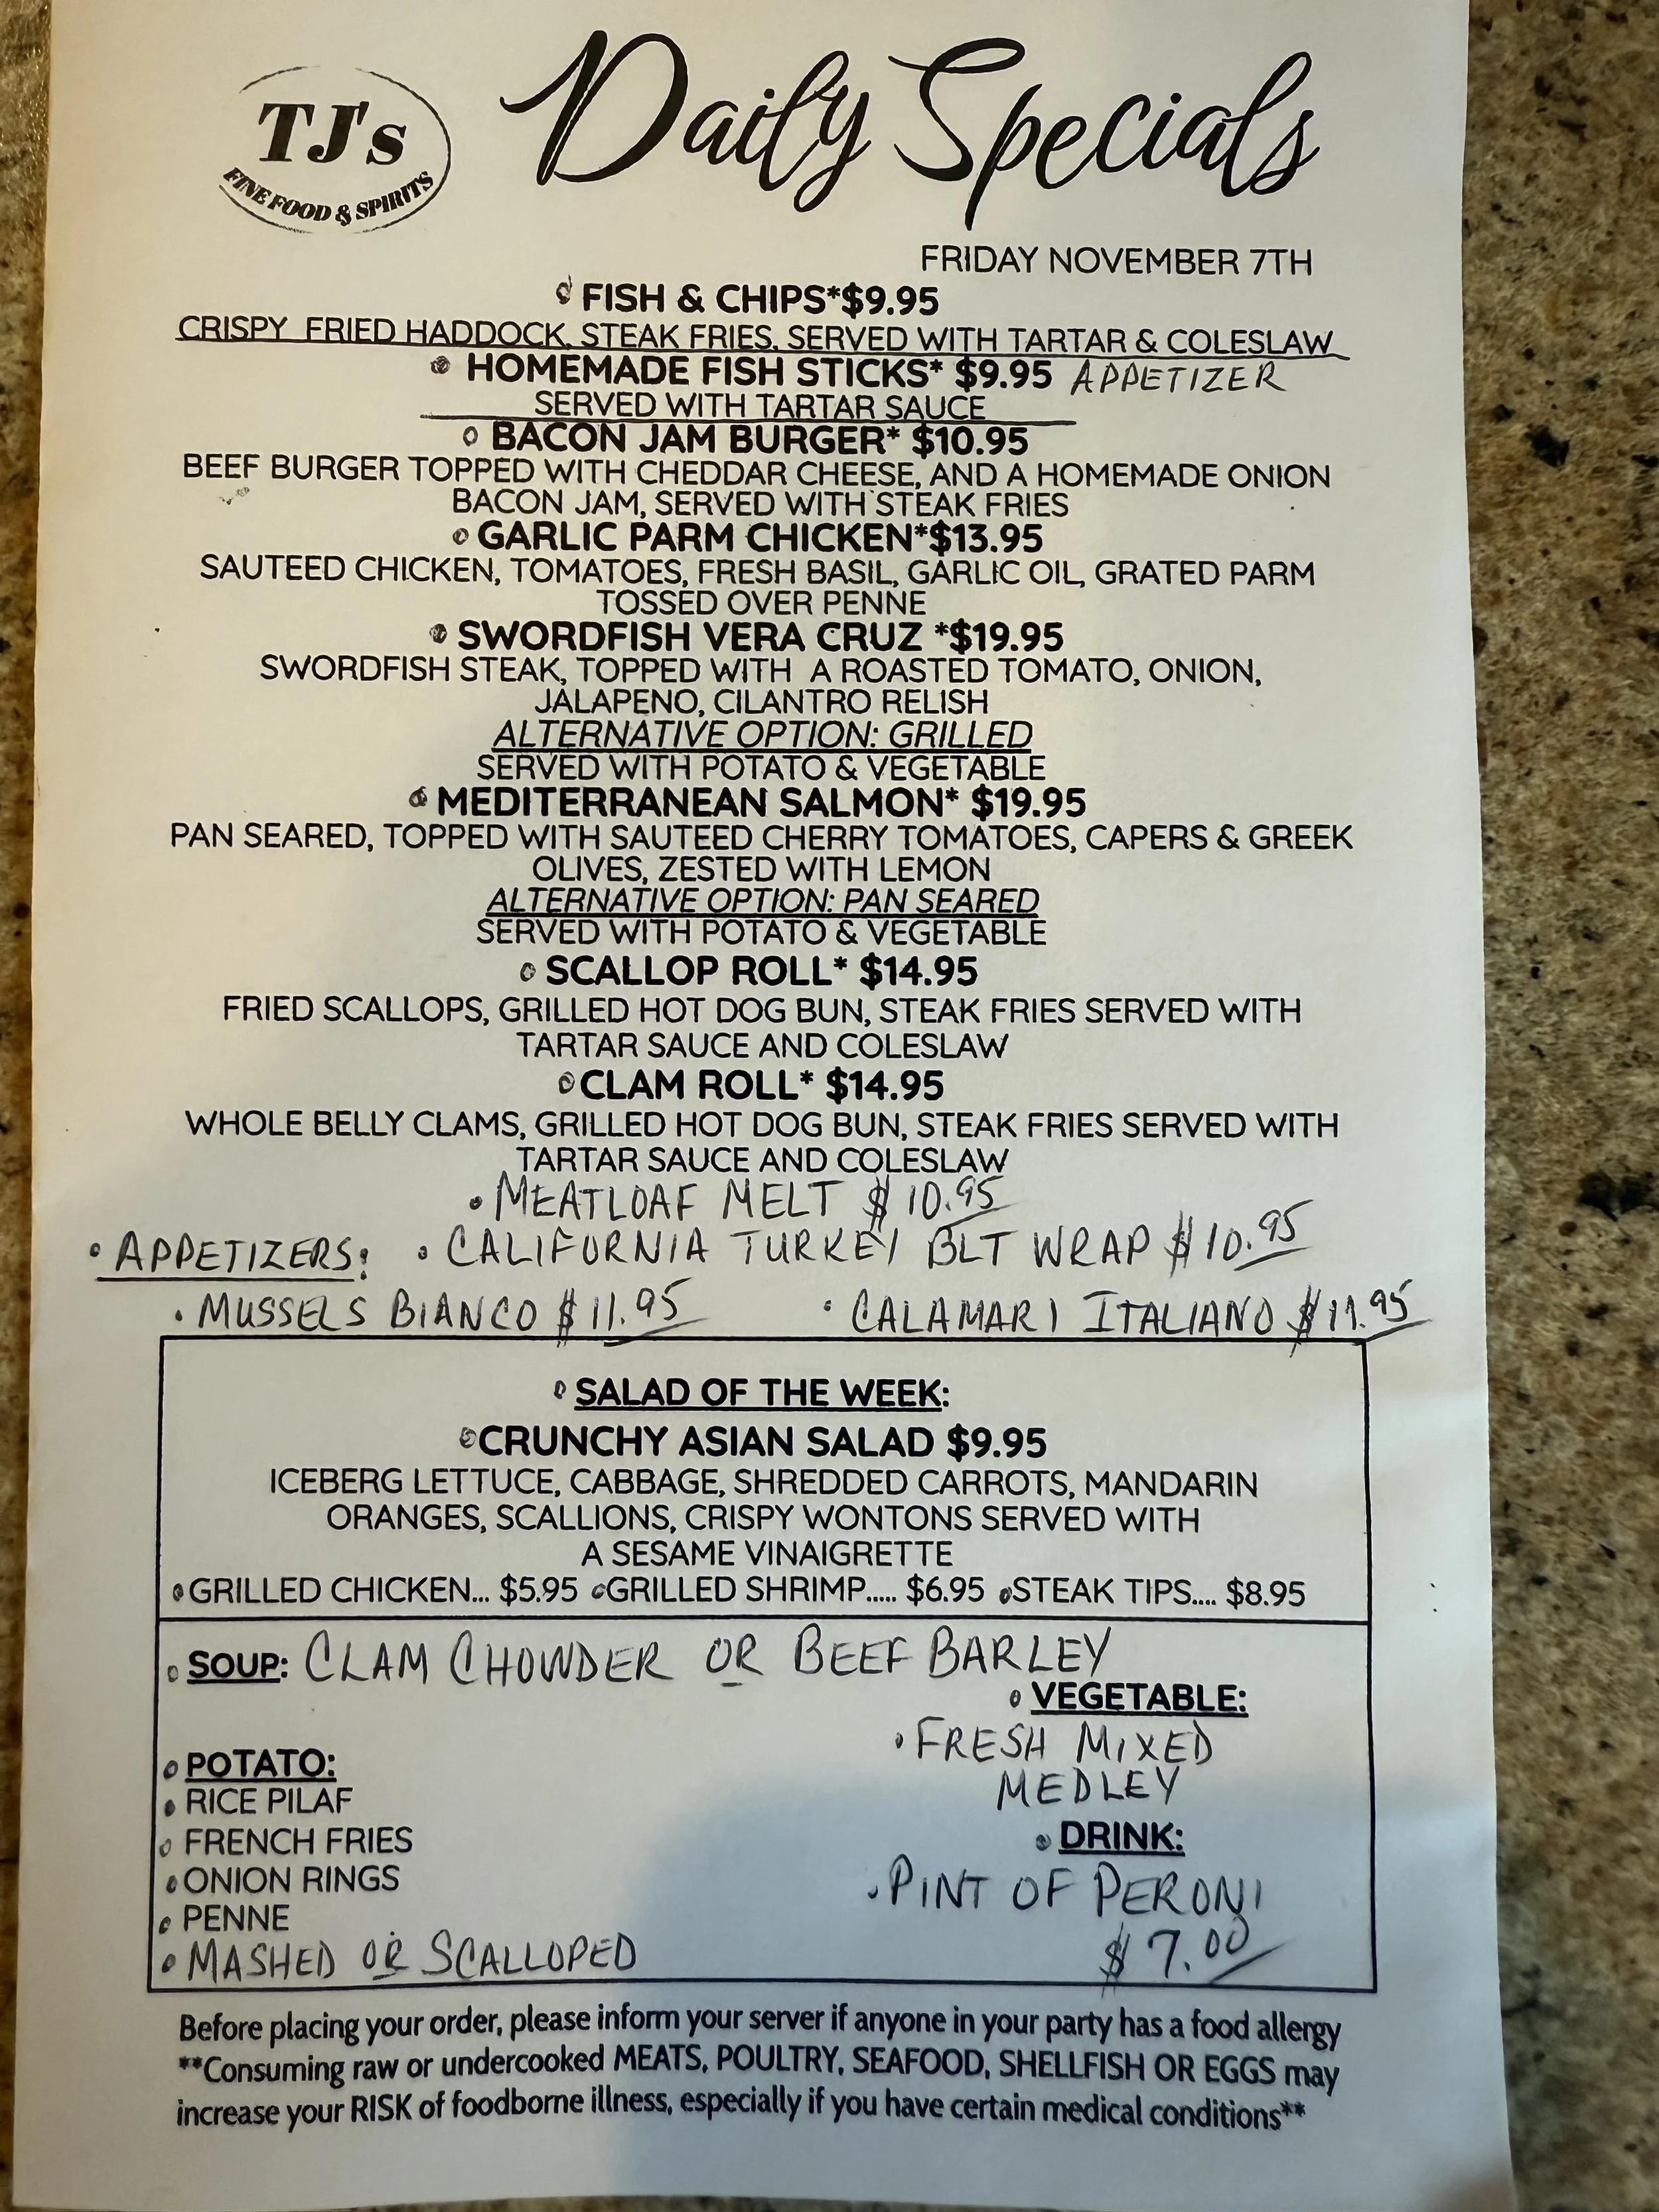 TJ's
FINE FOOD & SPIRITS
Daily Specials
FRIDAY NOVEMBER 7TH
FISH & CHIPS*$9.95
CRISPY FRIED HADDOCK, STEAK FRIES, SERVED WITH TARTAR & COLESLAW
HOMEMADE FISH STICKS* $9.95 APPETIZER
SERVED WITH TARTAR SAUCE
BACON JAM BURGER* $10.95
BEEF BURGER TOPPED WITH CHEDDAR CHEESE, AND A HOMEMADE ONION
BACON JAM, SERVED WITH STEAK FRIES
GARLIC PARM CHICKEN*$13.95
SAUTEED CHICKEN, TOMATOES, FRESH BASIL, GARLIC OIL, GRATED PARM
TOSSED OVER PENNE
SWORDFISH VERA CRUZ *$19.95
SWORDFISH STEAK, TOPPED WITH A ROASTED TOMATO, ONION,
JALAPENO, CILANTRO RELISH
ALTERNATIVE OPTION: GRILLED
SERVED WITH POTATO & VEGETABLE
MEDITERRANEAN SALMON* $19.95
PAN SEARED, TOPPED WITH SAUTEED CHERRY TOMATOES, CAPERS & GREEK
OLIVES, ZESTED WITH LEMON
ALTERNATIVE OPTION: PAN SEARED
SERVED WITH POTATO & VEGETABLE
SCALLOP ROLL* $14.95
FRIED SCALLOPS, GRILLED HOT DOG BUN, STEAK FRIES SERVED WITH
TARTAR SAUCE AND COLESLAW
CLAM ROLL* $14.95
WHOLE BELLY CLAMS, GRILLED HOT DOG BUN, STEAK FRIES SERVED WITH
TARTAR SAUCE AND COLESLAW
• MEATLOAF MELT $10.95
• APPETIZERS: • CALIFORNIA TURKEY BLT WRAP $10.95
• MUSSELS BIANCO $11.95 • CALAMARI ITALIANO $11.95
SALAD OF THE WEEK:
CRUNCHY ASIAN SALAD $9.95
ICEBERG LETTUCE, CABBAGE, SHREDDED CARROTS, MANDARIN
ORANGES, SCALLIONS, CRISPY WONTONS SERVED WITH
A SESAME VINAIGRETTE
• GRILLED CHICKEN... $5.95 • GRILLED SHRIMP..... $6.95 • STEAK TIPS.... $8.95
SOUP: CLAM CHOWDER OR BEEF BARLEY
VEGETABLE:
• FRESH MIXED
MEDLEY
POTATO:
• RICE PILAF
• FRENCH FRIES
• ONION RINGS
• PENNE
• MASHED OR SCALLOPED
DRINK:
• PINT OF PERONI
$7.00
Before placing your order, please inform your server if anyone in your party has a food allergy
**Consuming raw or undercooked MEATS, POULTRY, SEAFOOD, SHELLFISH OR EGGS may
increase your RISK of foodborne illness, especially if you have certain medical conditions**